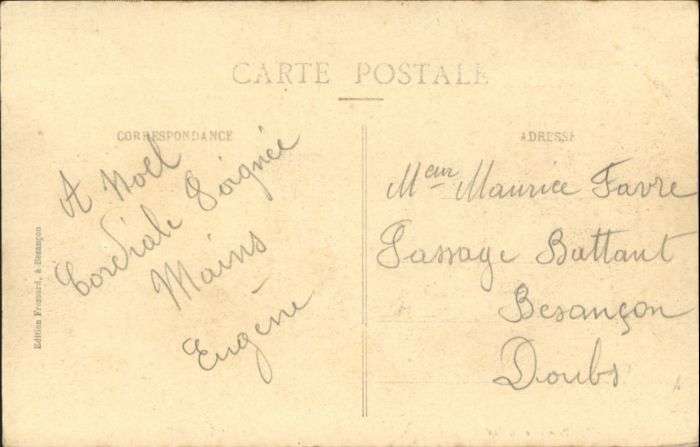 CARTE POSTALE
CORRESPONDANCE
A Noël
Cordiale Poignée
Mains
Eugène
ADRESSE
Meur Maurice Favre
Passage Battant
Besançon
Doubs
à Besançon